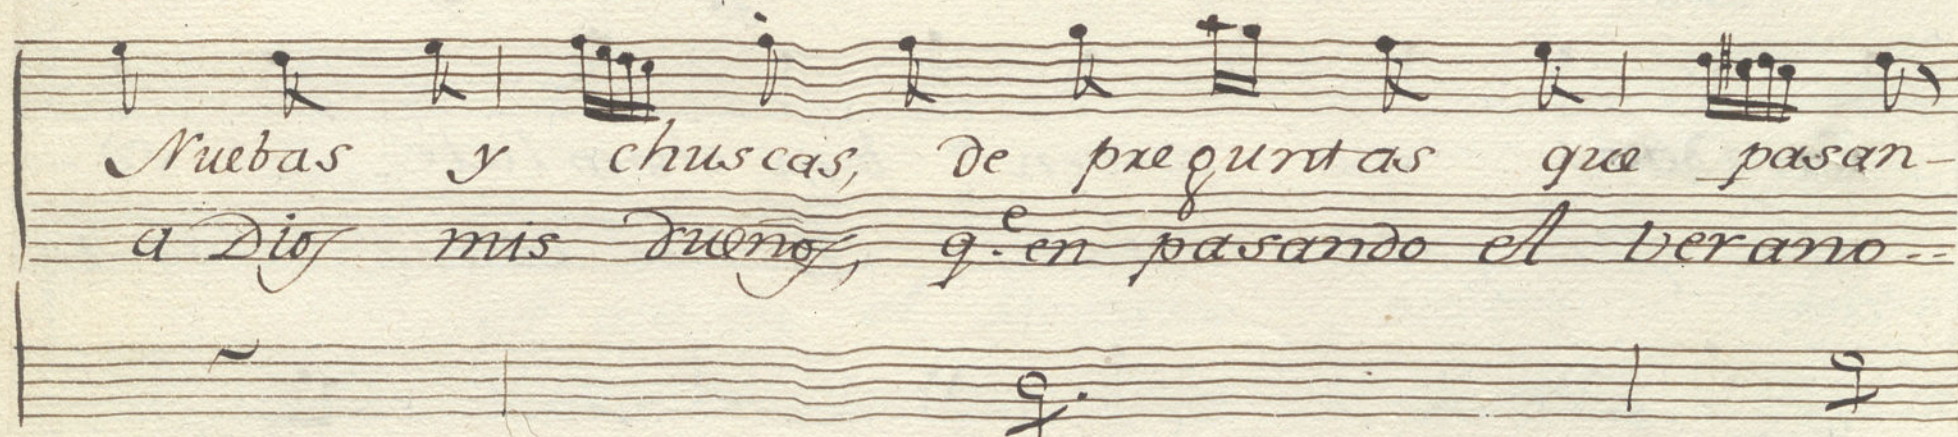 Nuebas y chuscas, de preguntas que pasan-
a Dios mis dueños, q.e en pasando el verano--